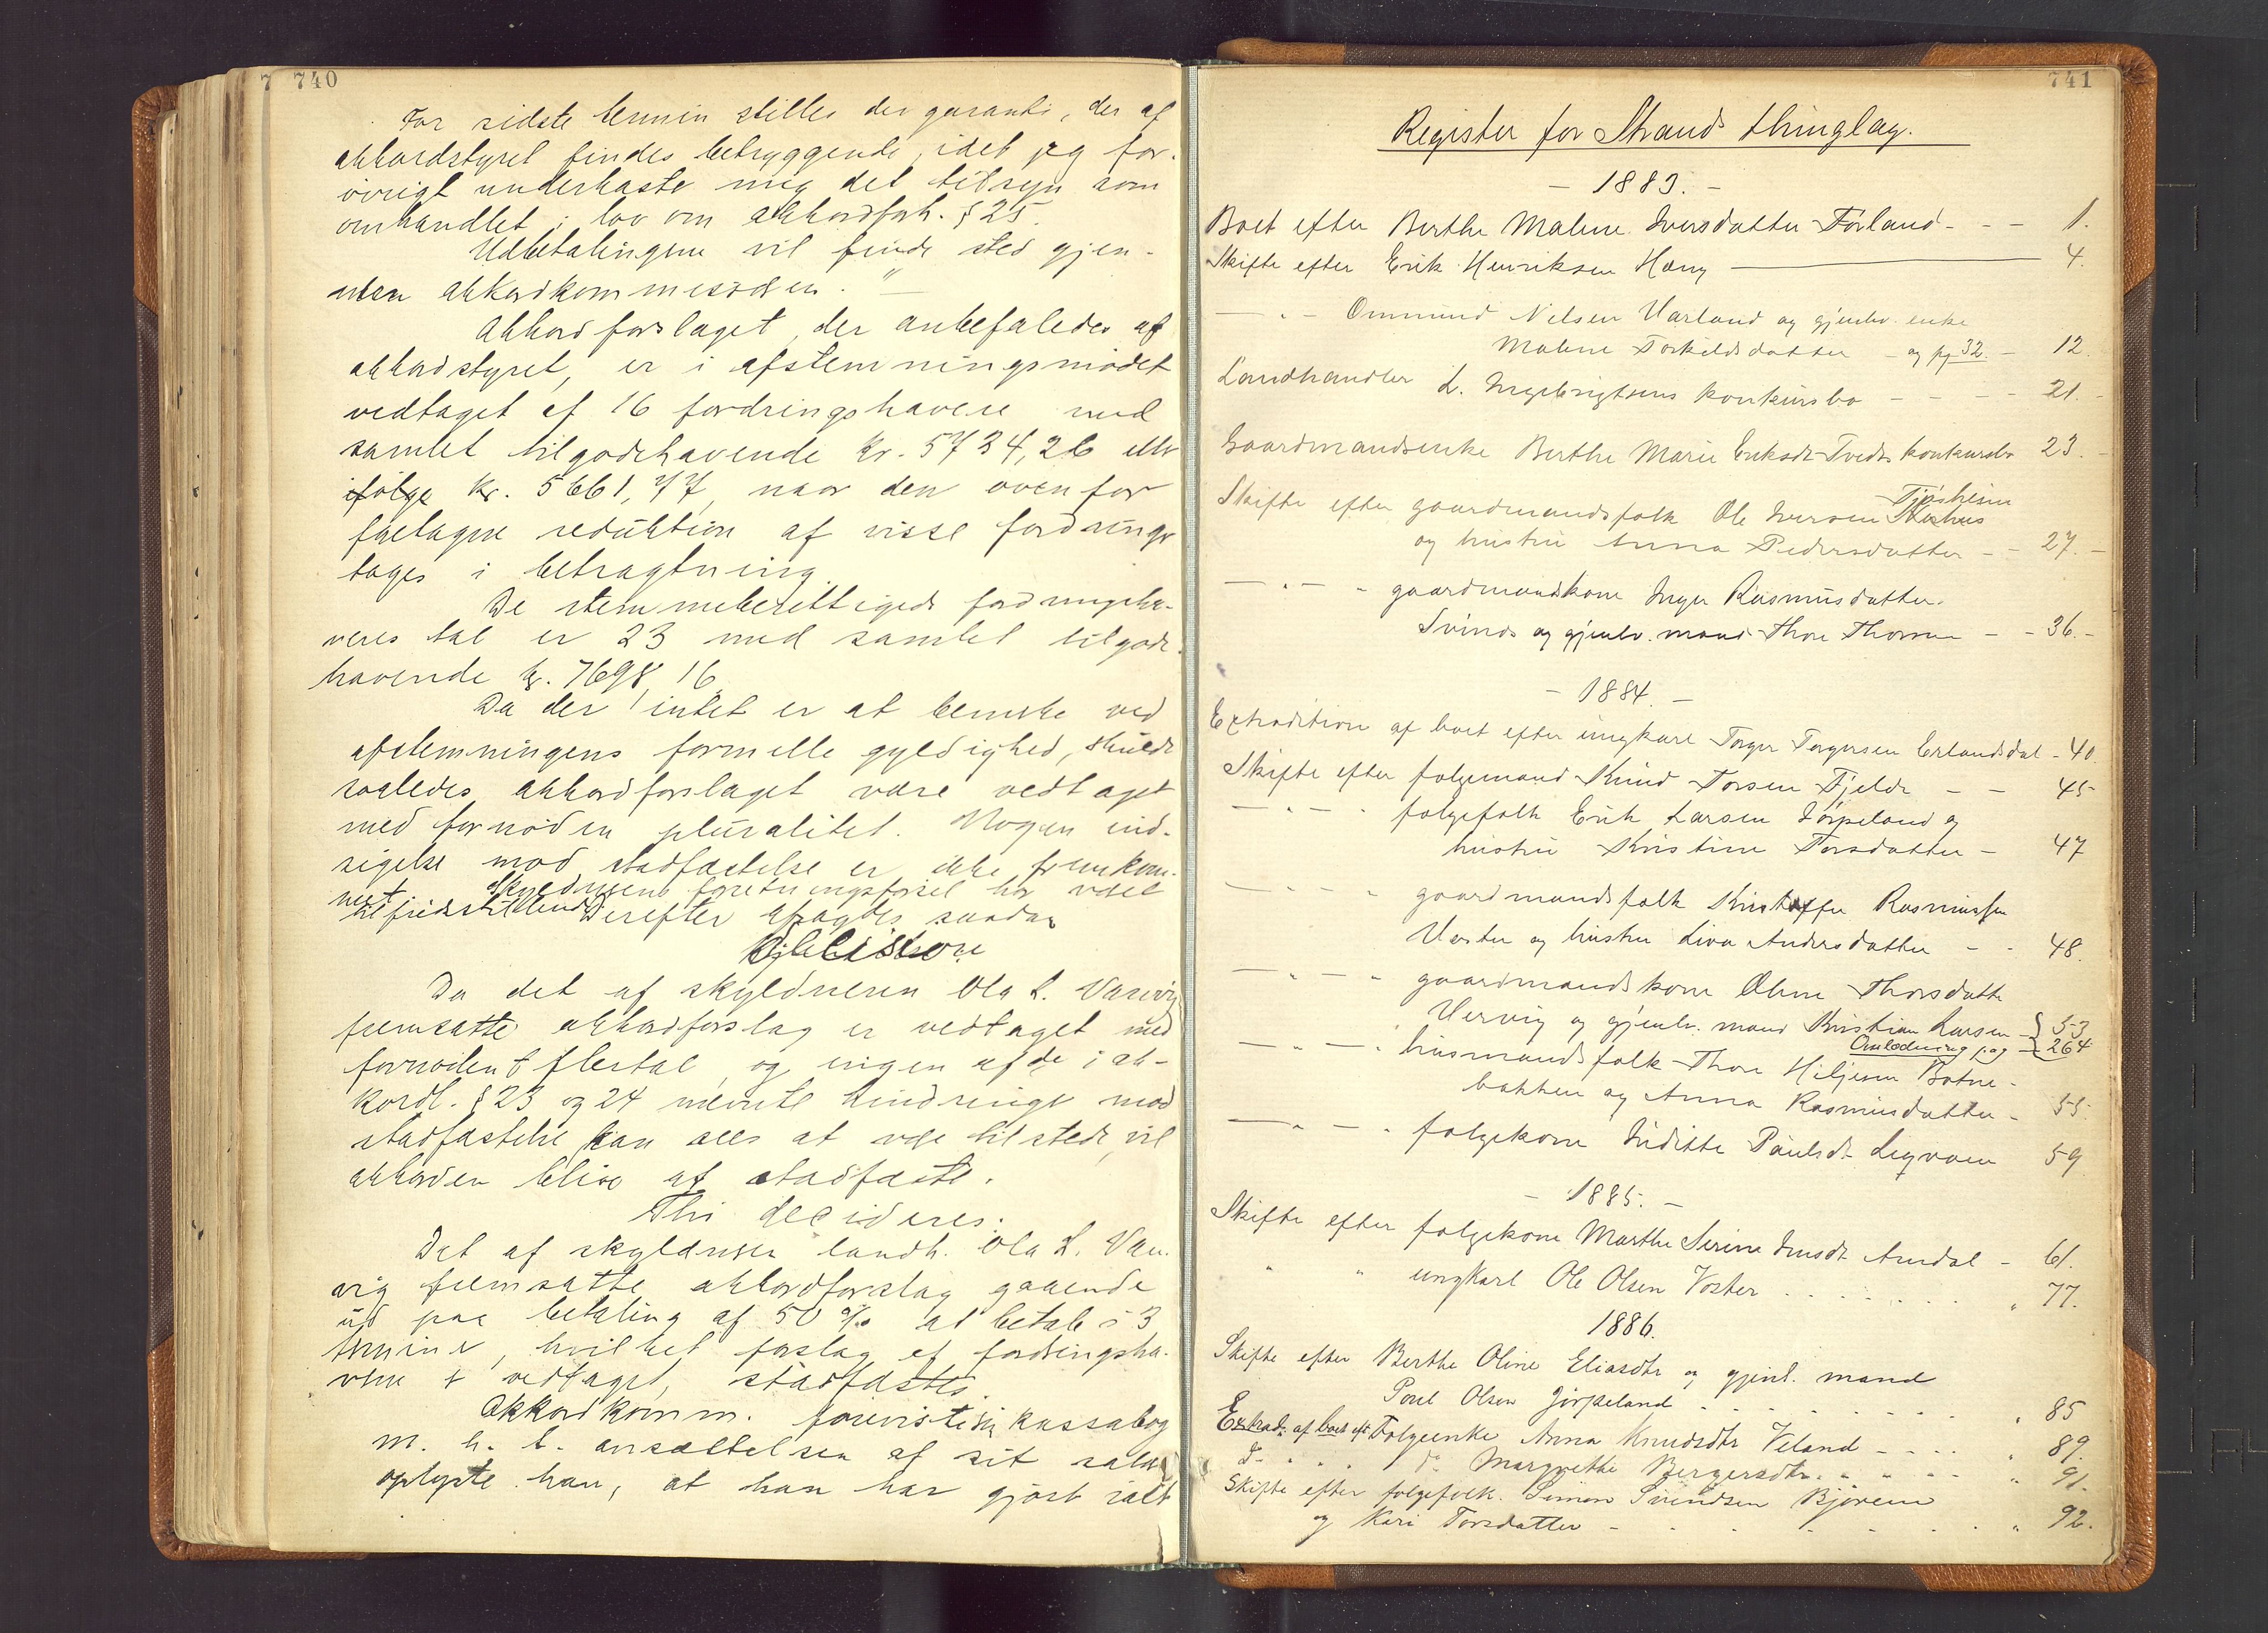 7 740
For sidste termin stilles der garanti, der af
akkordstyret findes betryggende, idet jeg for-
øvrigt underkaste mig det tilsyn som
omhandlet i lov om akkordforh. § 25.
Udbetalingene vil finde sted gjen-
nem akkordkommissionen. "
Akkordforslaget, der anbefaledes af
akkordstyret, er i afstemningsmødet
vedtaget af 16 fordringshavere med
samlet tilgodehavende kr. 5734,26 eller
ifølge kr. 5661,77, naar den ovenfor
foretagne reduktion af visse fordringer
tages i betragtning.
De stemmeberettigede fordringsha-
veres tal er 23 med samlet tilgode-
havende kr. 7698,16.
Da der intet er at bemerke ved
afstemningens formelle gyldighed, skulde
saaledes akkordforslaget være vedtaget
med fornøden pluralitet. Nogen ind-
sigelse mod stadfæstelse er ikke fremkom-
met. Skyldnerens forretningsførsel har været
tilfredsstillende. Derefter afsagdes saadan
Decision
Da det af skyldneren Ola L. Vanvig
fremsatte akkordforslag er vedtaget med
fornødent flertal, og ingen af de i ak-
kordl. § 23 og 24 nævnte hindringer mod
stadfæstelse kan sees at være tilstede, vil
akkorden blive at stadfæste.
Thi decideres:
Det af skyldneren landh. Ola L. Van-
vig fremsatte akkordforslag gaaende
ud paa betaling af 50 % at betale i 3
terminer, hvilket forslag af fordringsha-
verne er vedtaget, stadfæstes.
Akkordkomm. foreviste sin kassabog
m. h. t. ansættelsen af sit salær
oplyste han, at han har gjort ialt
741
Register for Strands thinglag.
- 1883. -
Boet efter Berthe Malene Iversdatter Førland - - - 1.
Skifte efter Erik Henriksen Høng 4.
- " - Ommund Nilsen Varland og gjenlev. enke
Malene Torkildsdatter - og pg 32. - 12.
Landhandler L. Ingebrigtsens konkursbo - - - - 21. -
Gaardmandsenke Berthe Marie Eriksdr Tveds konkursbo 23. -
Skifte efter gaardmandsfolk Ole Iversen Tjøsheim
og hustru Anna Pedersdatter - - 27. -
- " - - gaardmandskone Inger Rasmusdatter
Svines og gjenlev. mand Thore Thorsen - - 36. -
- 1884. -
Extradition af boet efter ungkarl Torger Torgersen Erlandsdal - 40.
Skifte efter følgemand Knud Torsen Fjelde - - 45
- " - - følgefolk Erik Larsen Jørpeland og
hustru Kristine Torsdatter - 47
- " - - gaardmandsfolk Kristoffer Rasmussen
Voster og hustru Siva Andersdatter - - 48.
- " - - gaardmandskone Oline Thorsdatter
Vervig og gjenlv. mand Kristian Larsen - } 53
Omlodning pag - } 264
- " - - husmandsfolk Thore Hiljesen Botne-
bakken og Anna Rasmusdatter - 55.
- " - - følgekone Juditte Paulsdr Legvam 59
- 1885. -
Skifte efter følgekone Marthe Serine Jensdr Amdal - 61.
" " ungkarl Ole Olsen Voster . . . . . . . " 77.
1886.
Skifte efter Berthe Oline Eliasdtr og gjenl. mand
Poul Olsen Jørpeland . . . . . . . . " 85
Extrad: af boet eft. Følgeenke Anna Knudsdtr Veland - - - - " 89.
do " " " do Margrethe Bergersdtr. " " " " " 91.
Skifte efter følgefolk. Simon Svendsen Bjørheim
og Kari Torsdatter - . . . . . . . " 92.